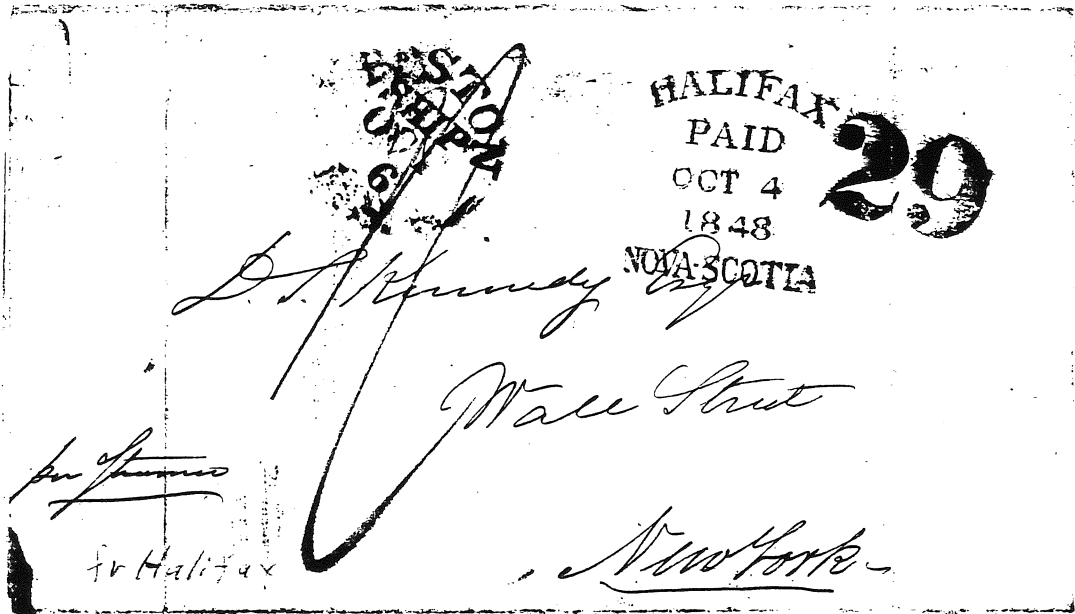 BOSTON
SHIP
OCT
6
HALIFAX
PAID
OCT 4
1848
NOVA-SCOTIA
29
D. S. Kennedy Esq
Wall Street
New York
per Steamer
fr Halifax